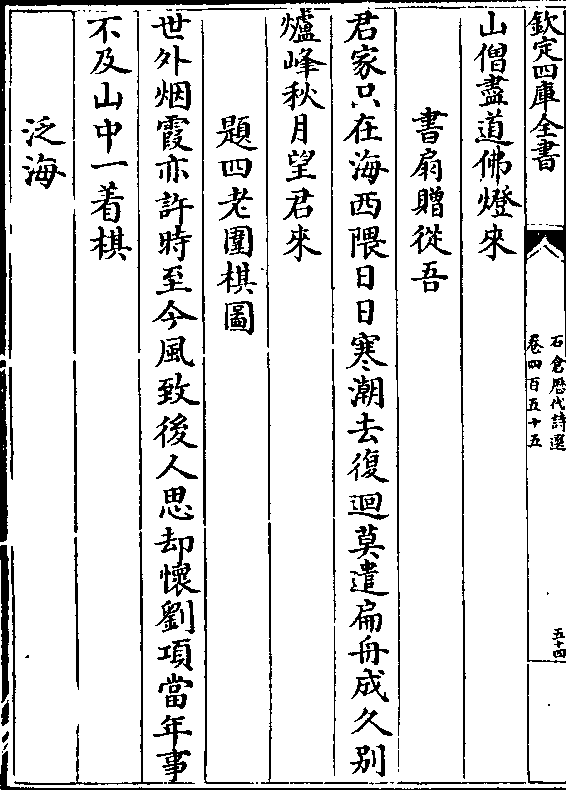 欽定四庫全書
石倉歷代詩選
卷四百五十五
五十四
山僧盡道佛燈來
書扇贈從吾
君家只在海西隈日日寒潮去復迴莫遣扁舟成久别
爐峰秋月望君來
題四老圍棋圖
世外烟霞亦許時至今風致後人思却懷劉項當年事
不及山中一着棋
泛海